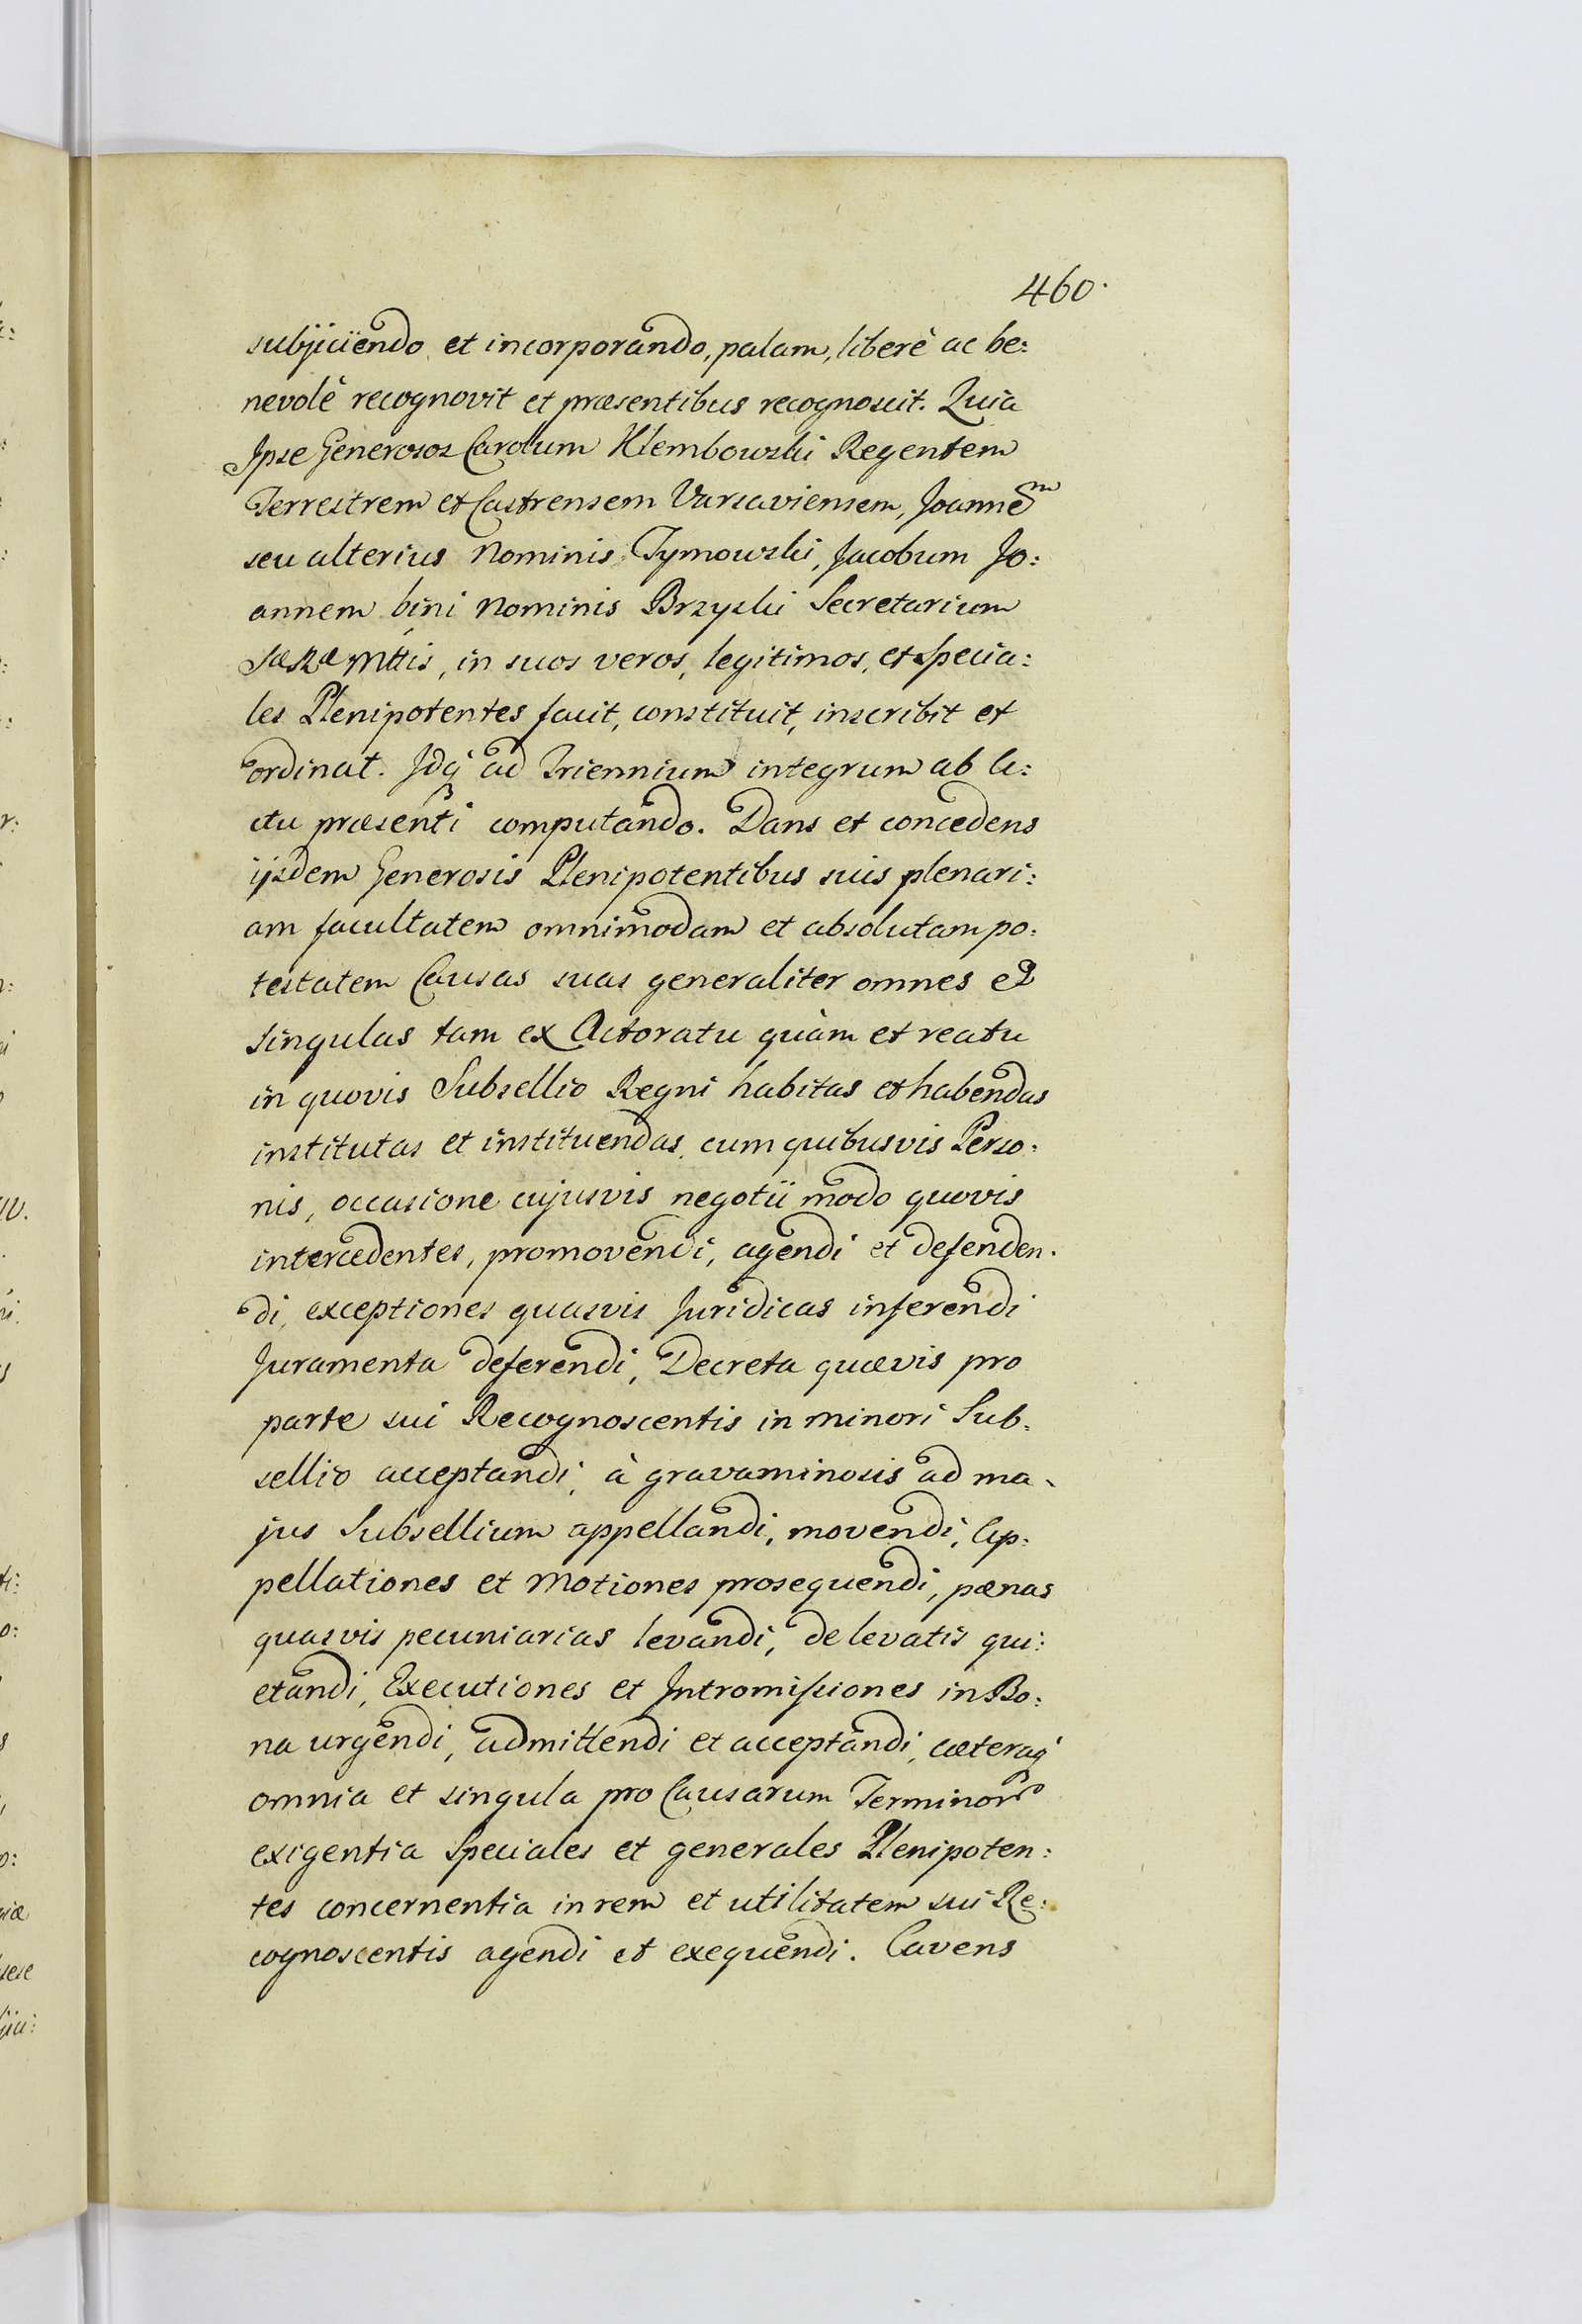 460.
subijciendo et incorporando, palam, liberè ac be:
nevolè recognovit et præsentibus recognoscit. Quia
Ipse Generosos Carolum Klembowski Regentem
Terrestrem et Castrensem Varsaviensem, Joannem
seu alterius Nominis Tymowski, Jacobum Jo:
annem bini Nominis Brzyski Secretarium
SæRæMttis, in suos veros, legitimos, et Specia:
les Plenipotentes facit, constituit, inscribit et
ordinat. Idq́ ad Triennium integrum ab A:
ctu præsenti computando. Dans et concedens
ijsdem Generosis Plenipotentibus suis plenari:
am facultatem omnimodam et absolutam po:
testatem Causas suas generaliter omnes et
singulas tam ex Actoratu quàm et reatu
in quovis Subsellio Regni habitas et habendas
institutas et instituendas, cum quibusvis Perso:
nis, occasione cujusvis negotii modo quovis
intercedentes, promovendi, agendi et defenden.
di, exceptiones quasvis Juridicas inferendi
Juramenta deferendi, Decreta quævis pro
parte sui Recognoscentis in minori Sub.
sellio acceptandi, à gravaminosis ad ma.
jus Subsellium appellandi, movendi, Ap:
pellationes et Motiones prosequendi, pænas
quasvis pecuniarias levandi, de levatis qui:
etandi, Executiones et Intromissiones in Bo:
na urgendi, admittendi et acceptandi, cæteraq́
omnia et singula pro Causarum Terminor
exigentia Speciales et generales Plenipoten:
tes concernentia in rem et utilitatem sui Re:
cognoscentis agendi et exequendi. Cavens